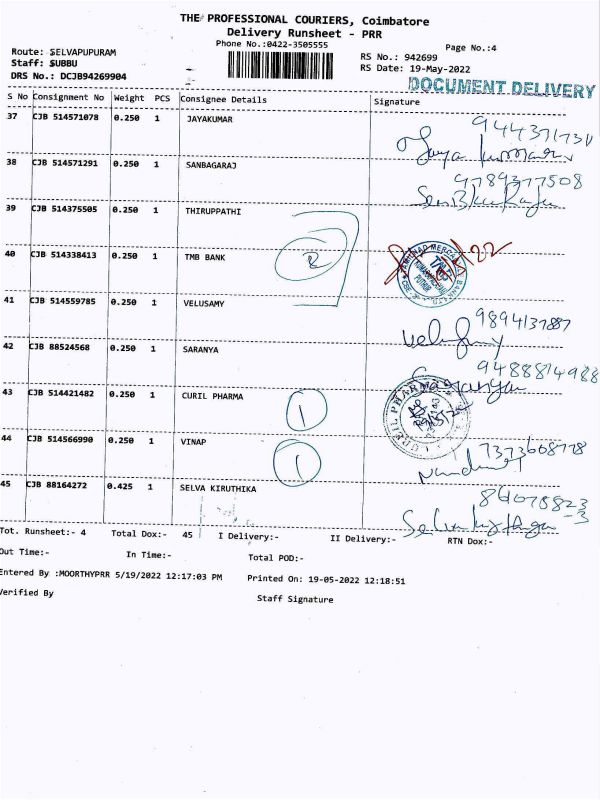 THE PROFESSIONAL COURIERS, Coimbatore
Delivery Runsheet - PRR
Phone No.:0422-3505555
Page No.:4
Route: SELVAPUPURAM
Staff: SUBBU
DRS No.: DCJB94269904
RS No.: 942699
RS Date: 19-May-2022
DOCUMENT DELIVERY
S No Consignment No Weight PCS Consignee Details Signature
37 CJB 514571078 0.250 1 JAYAKUMAR
38 CJB 514571291 0.250 1 SANBAGARAJ 9789377508
39 CJB 514375505 0.250 1 THIRUPPATHI
40 CJB 514338413 0.250 1 TMB BANK 2
41 CJB 514559785 0.250 1 VELUSAMY
42 CJB 88524568 0.250 1 SARANYA 9488814988
43 CJB 514421482 0.250 1 CURIL PHARMA 1
44 CJB 514566990 0.250 1 VINAP 1
45 CJB 88164272 0.425 1 SELVA KIRUTHIKA
Tot. Runsheet:- 4 Total Dox:- 45 I Delivery:- II Delivery:- RTN Dox:-
Out Time:- In Time:- Total POD:-
Entered By :MOORTHYPRR 5/19/2022 12:17:03 PM Printed On: 19-05-2022 12:18:51
Verified By Staff Signature